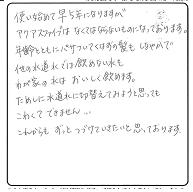 使い始めて早5年になりますが
アクアスライブはなくてはならないものになっております。
年齢とともにパサついてくるはずの髪も しなやかで
他の水道水では飲めない水も
わが家の水は おいしく飲めます。
ためしに水道水に切替えてみようと思っても
こわくてできません…
これからも ずっとつづけていきたいと思っております